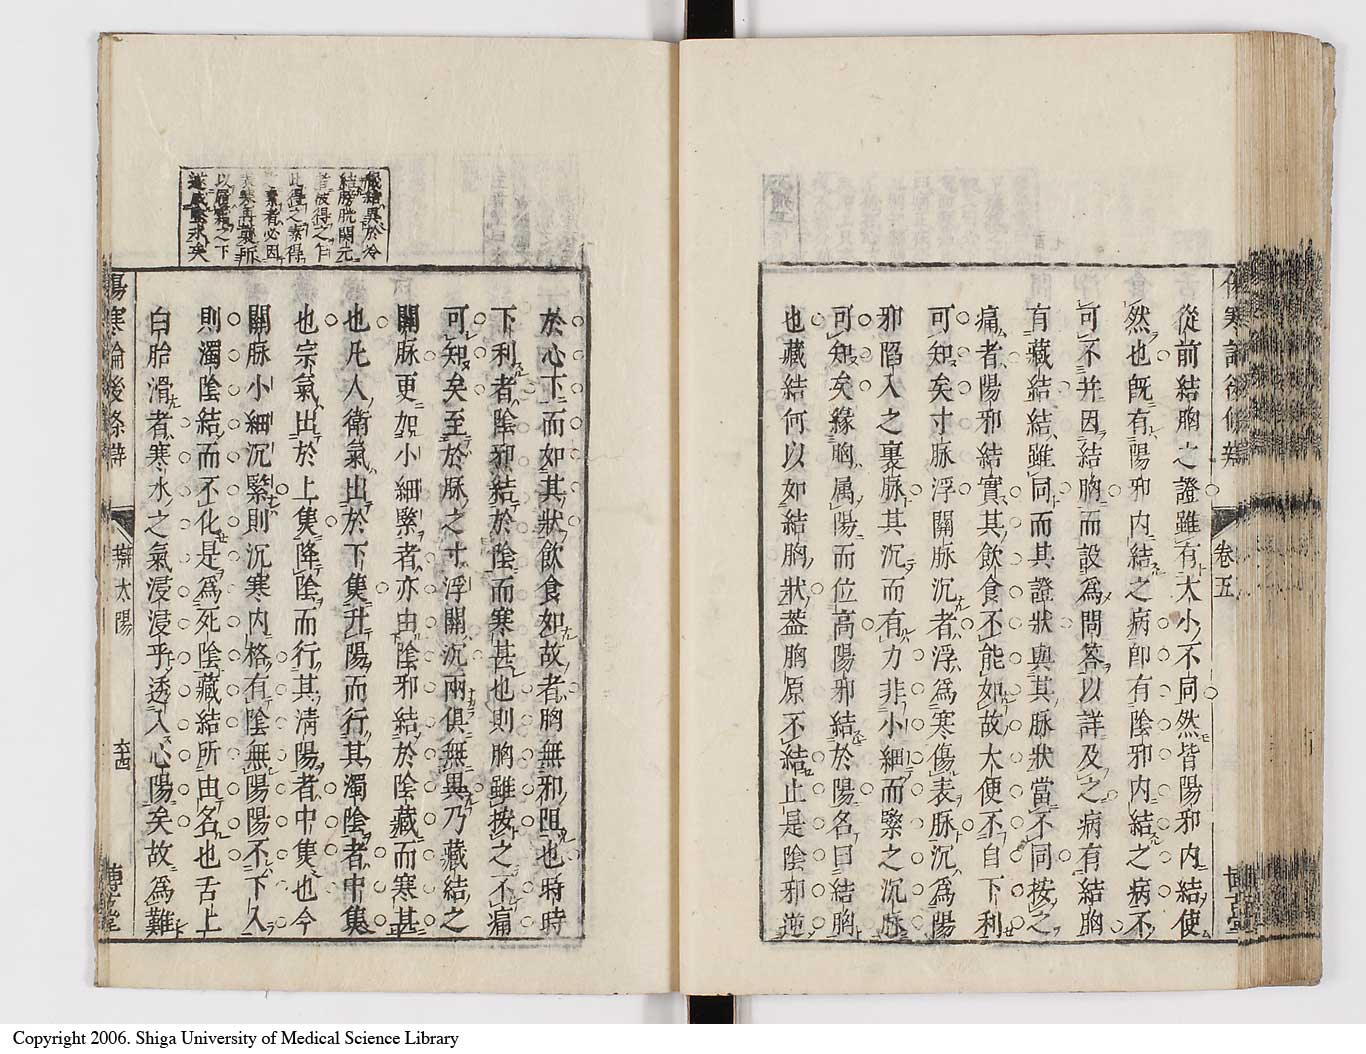 從前結胸之證雖有大小不同然皆陽邪內結使
然也既有陽邪内結之病卽有陰邪内結之病不
可不并因結胸而設爲問答以詳及之病有結胸
有藏結結雖同而其證狀與其脉狀當不同按之
痛者陽邪結實其飲食不能如故大便不自下利
可知矣寸脉浮關脉沉者浮爲寒傷表脉沉爲陽
邪陷入之裏脉其沉而有力非小細而緊之沉脉
可知矣緣胸属陽而位高陽邪結於陽名曰結胸
也藏結何以如結胸狀葢胸原不結止是陰邪逆
卷五
於心下而如其狀飲食如故者胸無邪阻也時時
下利者陰邪結於陰而寒甚也則胸雖按之不痛
可知矣至於脉之寸浮關沉兩俱無異乃藏結之
關脉更加小細緊者亦由陰邪結於陰藏而寒甚
也凡人衛氣出於下焦升陽而行其濁陰者中焦
也宗氣出於上焦降陰而行其淸陽者中焦也今
關脉小細沉緊則沉寒内格有陰無陽陽不下入
則濁陰結而不化是爲死陰藏結所由名也舌上
白胎滑者寒水之氣浸浸乎透入心陽矣故爲難
結膀胱關元
者彼得之
此得之素得
素者必因
寒再襲所
以履霜之下
遂戚堅氷矣
傷寒論後條辨
辨太陽